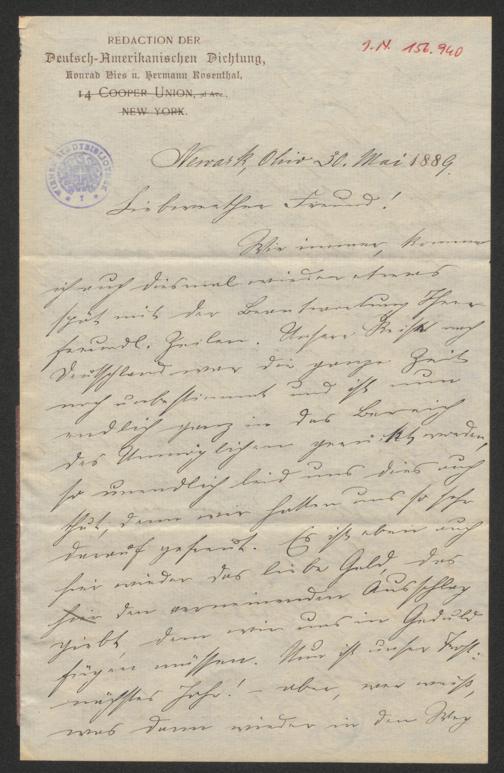 REDACTION DER
Deutsch-Amerikanischen Dichtung,
Konrad Nies u. Hermann Rosenthal,
14 COOPER UNION, 3d AVE.,
NEW YORK.
I.N. 156.940
WIENER STADTBIBLIOTHEK
Newark, Ohio 30. Mai 1889.
Lieberwerther Freund!
Wie immer, komme
ich auch diesmal wieder etwas
spät mit der Beantwortung Ihrer
freundl. Zeilen. Unsere Reise nach
Deutschland war die ganze Zeit
noch unbestimmt und ist nun
endlich ganz in das Bereich
des Unmöglichen gerückt worden,
so unendlich leid uns dies auch
thut, denn wir hatten uns so sehr
darauf gefreut. Es ist eben auch
hier wieder das liebe Geld, das
hier den verneinenden Ausschlag
giebt, dem wir uns in Geduld
fügen müssen. Nun ist unser Trost:
nächstes Jahr! – aber, wer weiß,
was dann wieder in den Weg